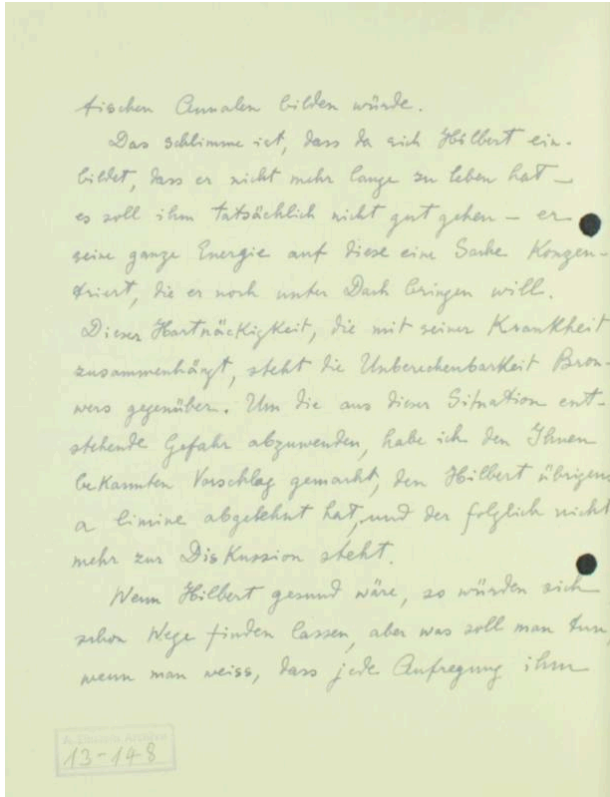 tischen Annalen bilden würde.
Das schlimme ist, dass da sich Hilbert ein-
bildet, dass er nicht mehr lange zu leben hat –
es soll ihm tatsächlich nicht gut gehen – er
seine ganze Energie auf diese eine Sache Konzen-
triert, die er noch unter Dach bringen will.
Dieser Hartnäckigkeit, die mit seiner Krankheit
zusammenhängt, steht die Unberechenbarkeit Brou-
wers gegenüber. Um die aus dieser Situation ent-
stehende Gefahr abzuwenden, habe ich den Ihnen
bekannten Vorschlag gemacht, den Hilbert übrigens
a limine abgelehnt hat, und der folglich nicht
mehr zur Diskussion steht.
Wenn Hilbert gesund wäre, so würden sich
schon Wege finden lassen, aber was soll man tun,
wenn man weiss, dass jede Aufregung ihm
A. Einstein Archives
13-148